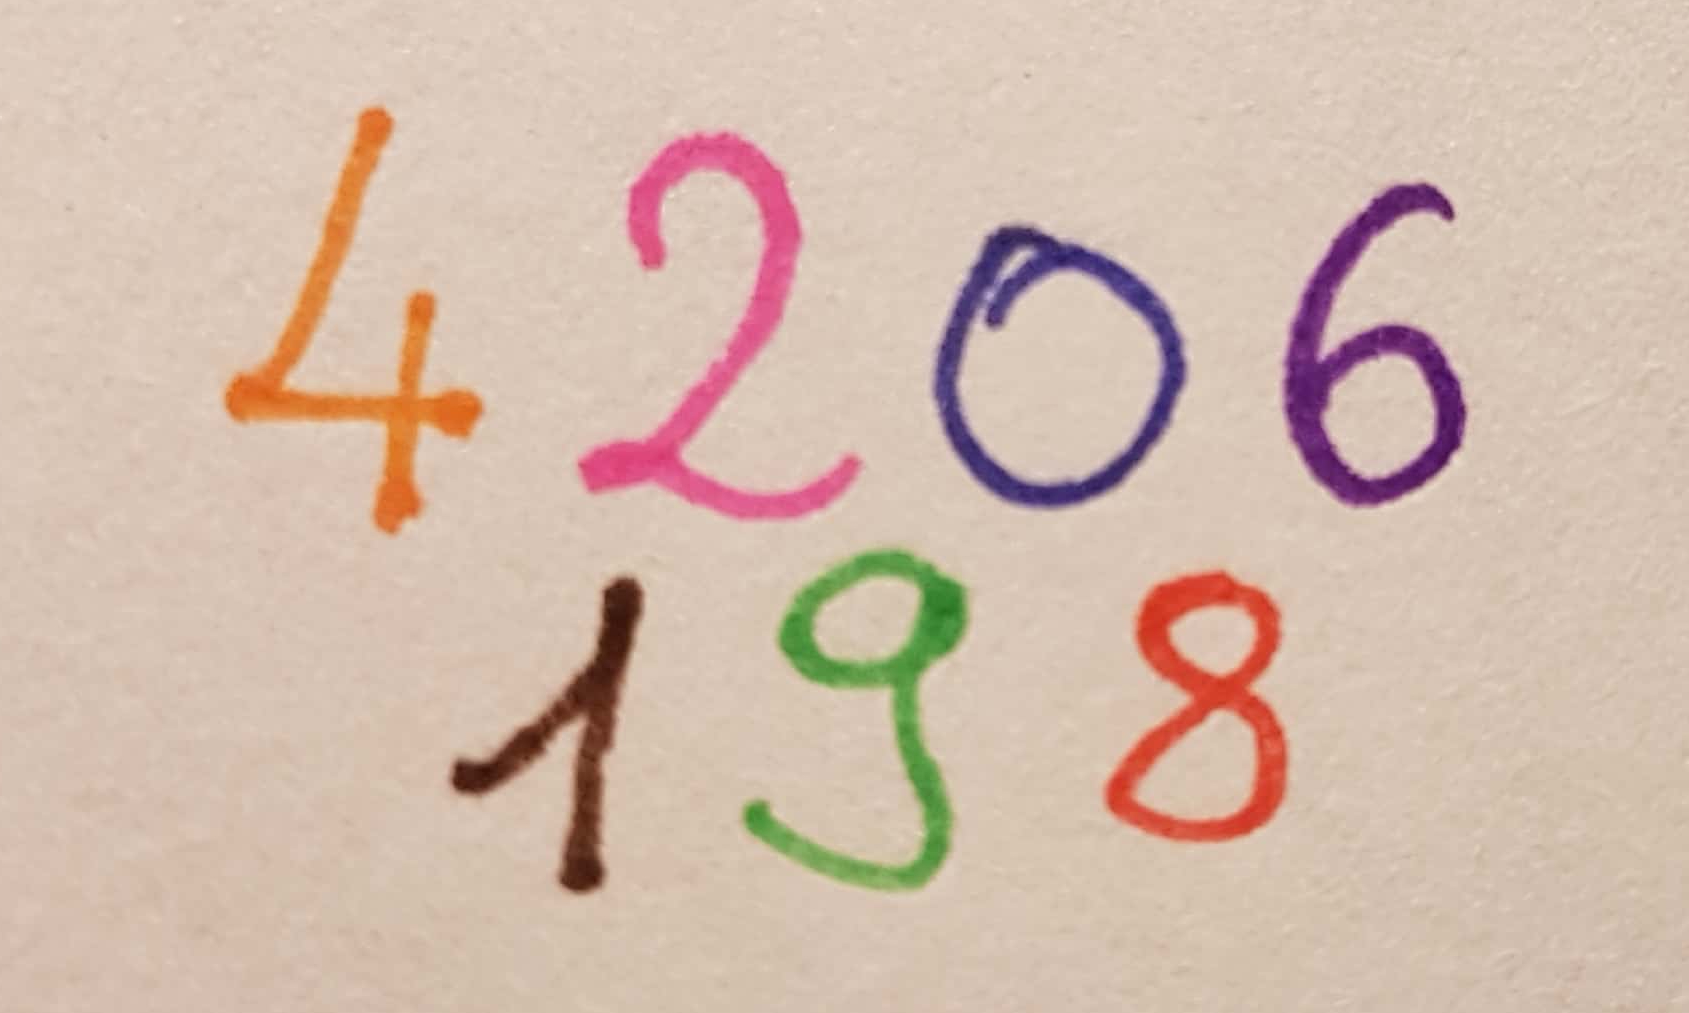 4206
198